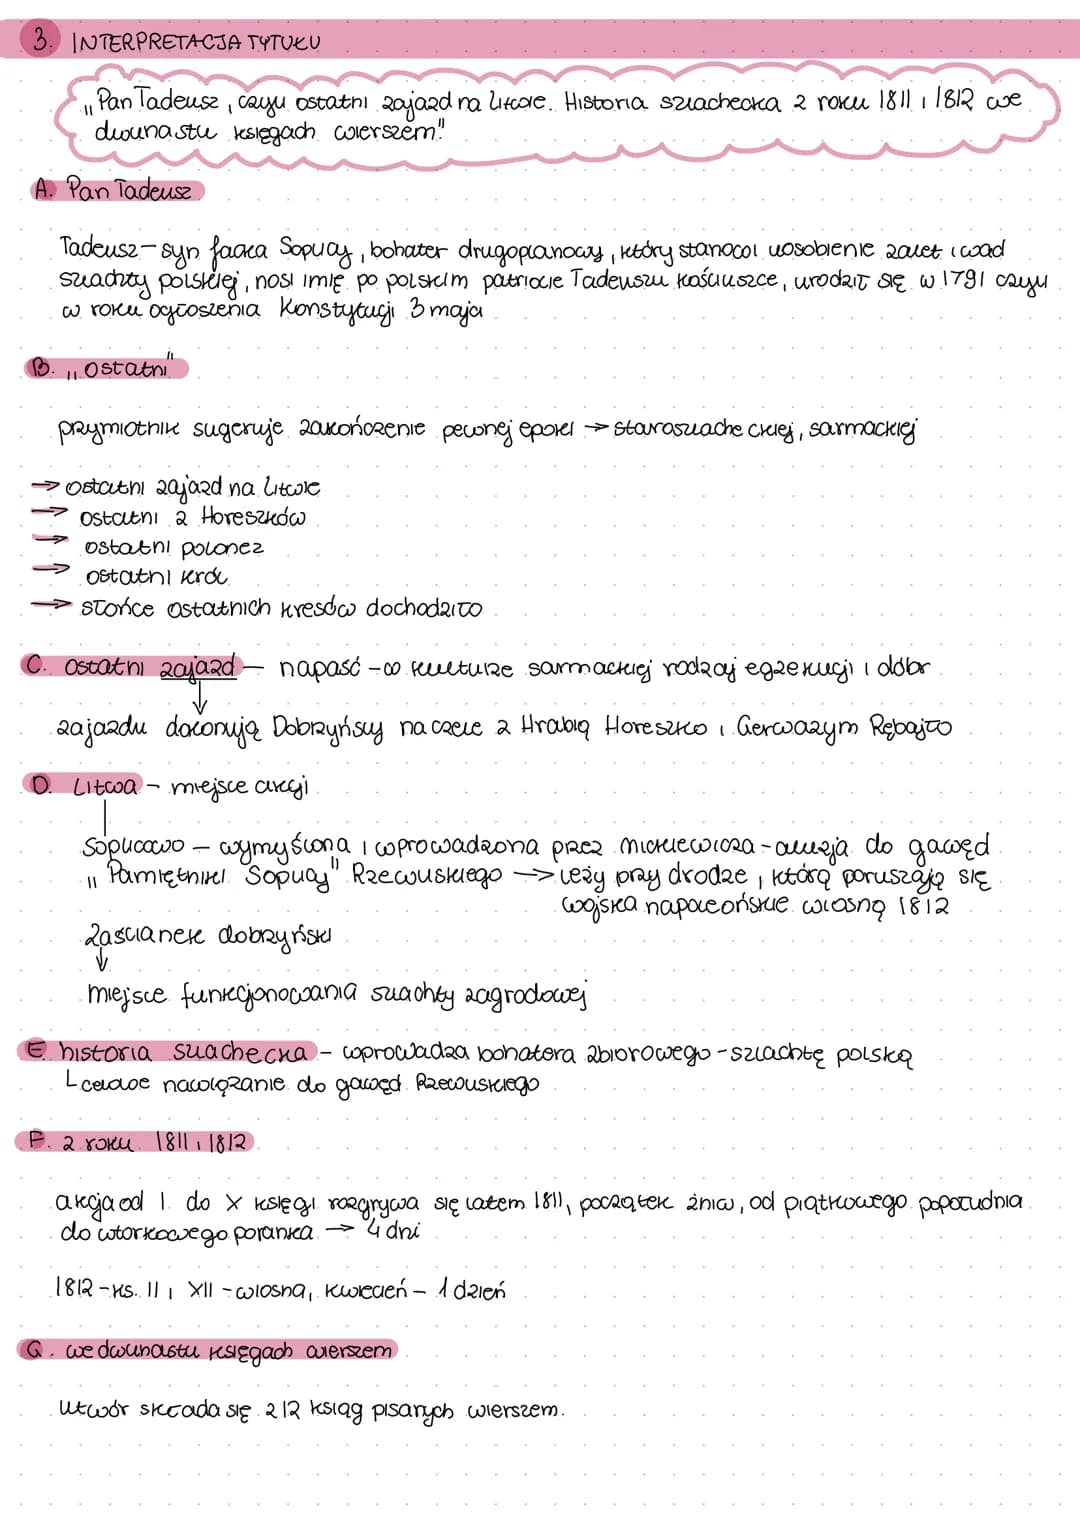 3. INTERPRETACJA TYTUŁU
„Pan Tadeusz, czyli ostatni zajazd na Litwie. Historia szlachecka z roku 1811 i 1812 we
dwunastu księgach wierszem"
A. Pan Tadeusz
Tadeusz - syn Jacka Soplicy, bohater drugoplanowy, który stanowi uosobienie zalet i wad
szlachty polskiej, nosi imię po polskim patriocie Tadeuszu Kościuszce, urodził się w 1791 czyli
w roku ogłoszenia Konstytucji 3 maja
B. „Ostatni"
przymiotnik sugeruje zakończenie pewnej epoki → staroszlacheckiej, sarmackiej
→ ostatni zajazd na Litwie
→ ostatni z Horeszków
→ ostatni polonez
→ ostatni król
→ słońce ostatnich kresów dochodziło
C. Ostatni zajazd - napaść - w kulturze sarmackiej rodzaj egzekucji i dóbr
zajazdu dokonują Dobrzyńscy na czele z Hrabią Horeszko i Gerwazym Rębajło
D. Litwa - miejsce akcji
Soplicowo - wymyślona i wprowadzona przez Mickiewicza - aluzja do gawęd
„Pamiętniki Soplicy" Rzewuskiego → leży przy drodze, którą poruszają się
wojska napoleońskie wiosną 1812
Zaścianek dobrzyński
↓
miejsce funkcjonowania szlachty zagrodowej
E. historia szlachecka - wprowadza bohatera zbiorowego - szlachtę polską
celowe nawiązanie do gawęd Rzewuskiego
F. z roku 1811 i 1812
akcja od I do X księgi rozgrywa się latem 1811, początek żniw, od piątkowego popołudnia
do wtorkowego poranka → 4 dni
1812 - ks. 11 i XII - wiosna, kwiecień - 1 dzień
G. we dwunastu księgach wierszem
Utwór składa się z 12 ksiąg pisanych wierszem.